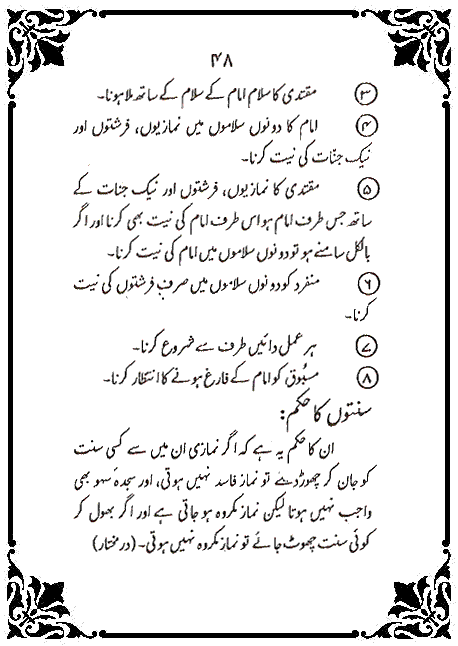 ۴۸
۳ مقتدی کا سلام امام کے سلام کے ساتھ ملا ہونا۔
۴ امام کا دونوں سلاموں میں نمازیوں، فرشتوں اور
نیک جنّات کی نیت کرنا۔
۵ مقتدی کا نمازیوں، فرشتوں اور نیک جنات کے
ساتھ جس طرف امام ہو اس طرف امام کی نیت بھی کرنا اور اگر
بالکل سامنے ہو تو دونوں سلاموں میں امام کی نیت کرنا۔
۶ منفرد کو دونوں سلاموں میں صرف فرشتوں کی نیت
کرنا۔
۷ ہر عمل دائیں طرف سے شروع کرنا۔
۸ مسبُوق کو امام کے فارغ ہونے کا انتظار کرنا۔
سنتوں کا حکم:
ان کا حکم یہ ہے کہ اگر نمازی ان میں سے کسی سنت
کو جان کر چھوڑ دے تو نماز فاسد نہیں ہوتی، اور سجدہ سہو بھی
واجب نہیں ہوتا لیکن نماز مکروہ ہو جاتی ہے اور اگر بھول کر
کوئی سنت چھوٹ جائے تو نماز مکروہ نہیں ہوتی۔ (درمختار)